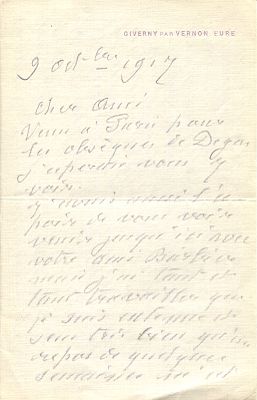 GIVERNY PAR VERNON EURE
9 octbre 1917
Cher Ami
Venu à Paris pour
les obsèques de Degas
j'esperais vous y
voir.
j'avais aussi l'es
poir de vous voir
venir jusqu'ici avec
votre ami
mais j'ai tant et
tant travailler que
je suis extenué et
sens très bien qu'un
repos de quelques
semaines